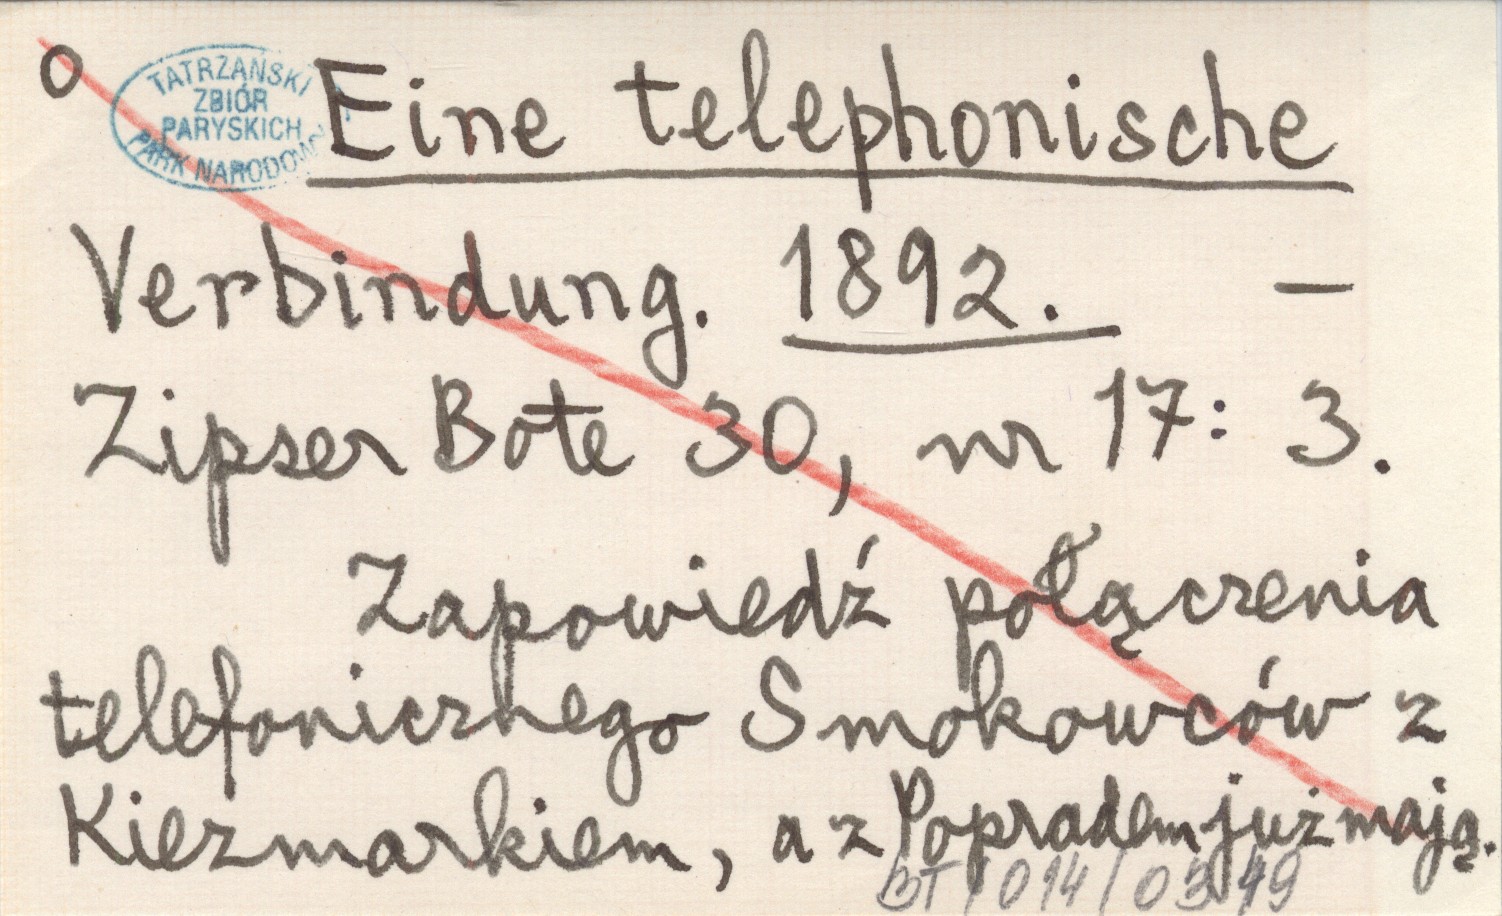 o TATRZAŃSKI ZBIÓR PARYSKICH PARK NARODOWY Eine telephonische
Verbindung. 1892. —
Zipser Bote 30, nr 17: 3.
Zapowiedź połączenia
telefonicznego Smokowców z
Kiezmarkiem, a z Popradem już mają.
BT/014/03.49